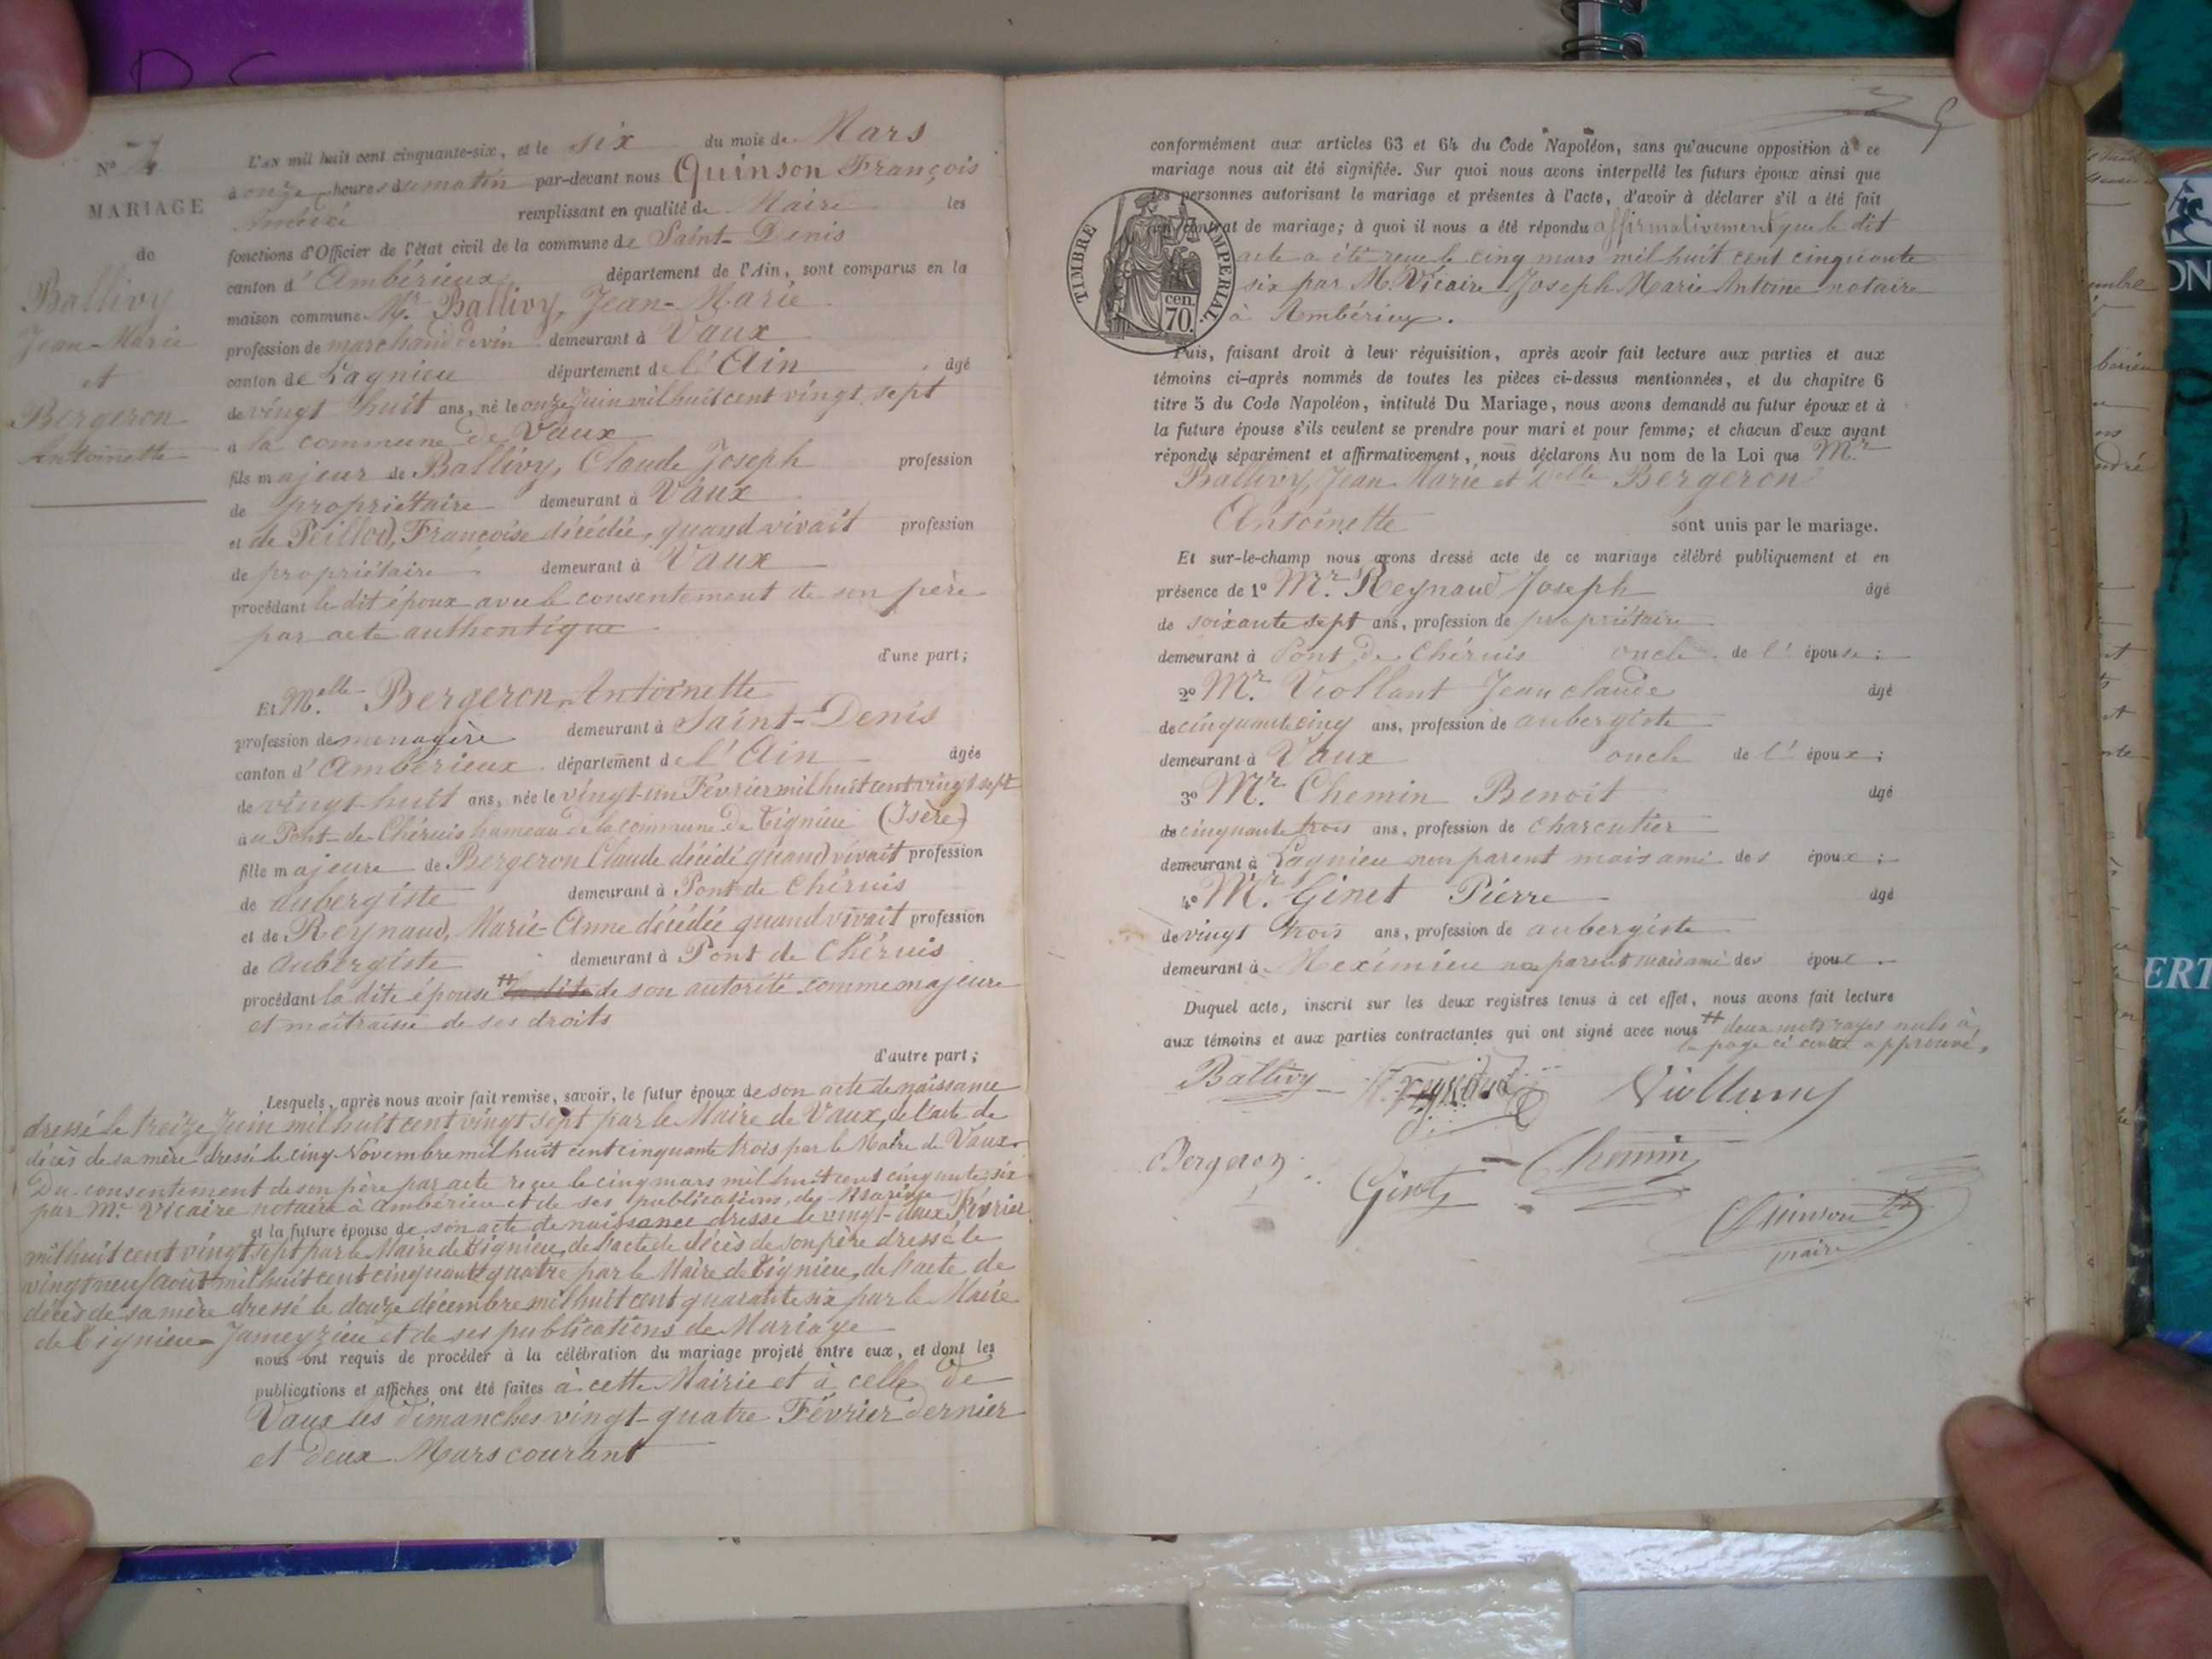 N° 4
MARIAGE
de
Ballivy
Jean-Marie
et
Bergeron
Antoinette
L'an mil huit cent cinquante-six, et le six du mois de Mars
à onze heures du matin par-devant nous Quinson François
remplissant en qualité de Maire les
fonctions d'Officier de l'état civil de la commune de Saint-Denis
canton d'Ambérieux département de l'Ain, sont comparus en la
maison commune Mr. Ballivy, Jean-Marie
profession de marchand de vin demeurant à Vaux
canton de Lagnieu département de l'Ain âgé
de vingt huit ans, né le onze Juin mil huit cent vingt sept
à la commune de Vaux
fils majeur de Ballivy, Claude Joseph profession
de propriétaire demeurant à Vaux
et de Peillod, Francoise décédée, quand vivait profession
de propriétaire demeurant à Vaux
procédant le dit époux avec le consentement de son père
par acte authentique
d'une part;
Et Melle Bergeron, Antoinette
profession de menagère demeurant à Saint-Denis
canton d'Ambérieux département de l'Ain âgée
de vingt-huit ans, née le vingt-un Février mil huit cent vingt sept
à u Pont-de-Chéruis hameau de la commune de Tignieu (Isère)
fille majeure de Bergeron Claude décédé quand vivait profession
de aubergiste demeurant à Pont de Chéruis
et de Reynaud, Marie-Anne décédée quand vivait profession
de aubergiste demeurant à Pont de Chéruis
procédant la dite épouse la dite de son autorité comme majeure
et maîtraisse de ses droits
d'autre part;
Lesquels, après nous avoir fait remise, savoir, le futur époux de son acte de naissance
dressé le treize Juin mil huit cent vingt sept par le Maire de Vaux, de l'acte de
décès de sa mère dressé le cinq Novembre mil huit cent cinquante trois par le Maire de Vaux
Du consentement de son père par acte reçu le cinq mars mil huit cent cinquante six
par Mr. Vicaire notaire à ambérieu et de ses publications de Mariage
et la future épouse de son acte de naissance dressé le vingt-deux Février
mil huit cent vingt sept par le Maire de Tignieu, de l'acte de décès de son père dressé le
vingt neuf août mil huit cent cinquante quatre par le Maire de Tignieu, de l'acte de
décès de sa mère dressé le douze décembre mil huit cent quarante six par le Maire
de Tignieu-Jameyzieu et de ses publications de Mariage
nous ont requis de procéder à la célébration du mariage projeté entre eux, et dont les
publications et affiches ont été faites à cette Mairie et à celle de
Vaux les dimanches vingt-quatre Février dernier
et deux Mars courant
conformément aux articles 63 et 64 du Code Napoléon, sans qu'aucune opposition à ce
mariage nous ait été signifiée. Sur quoi nous avons interpellé les futurs époux ainsi que
les personnes autorisant le mariage et présentes à l'acte, d'avoir à déclarer s'il a été fait
un contrat de mariage; à quoi il nous a été répondu affirmativement que le dit
acte a été reçu le cinq mars mil huit cent cinquante
six par M. Vicaire Joseph Marie Antoine notaire
à Ambérieux.
TIMBRE IMPERIAL
70 cen.
Puis, faisant droit à leur réquisition, après avoir fait lecture aux parties et aux
témoins ci-après nommés de toutes les pièces ci-dessus mentionnées, et du chapitre 6
titre 5 du Code Napoléon, intitulé Du Mariage, nous avons demandé au futur époux et à
la future épouse s'ils veulent se prendre pour mari et pour femme; et chacun d'eux ayant
répondu séparément et affirmativement, nous déclarons Au nom de la Loi que Mr
Ballivy, Jean Marie et Delle Bergeron
Antoinette sont unis par le mariage.
Et sur-le-champ nous avons dressé acte de ce mariage célébré publiquement et en
présence de 1° Mr. Reynaud Joseph âgé
de soixante sept ans, profession de propriétaire
demeurant à Pont de Chéruis oncle de l'épouse;
2° Mr. Viollant Jean claude âgé
de cinquante cinq ans, profession de aubergiste
demeurant à Vaux oncle de l'époux;
3° Mr. Chemin Benoit âgé
de cinquante trois ans, profession de charcutier
demeurant à Lagnieu non parent mais ami des époux;
4° Mr. Ginet Pierre âgé
de vingt trois ans, profession de aubergiste
demeurant à Meximieu non parent mais ami des époux.
Duquel acte, inscrit sur les deux registres tenus à cet effet, nous avons fait lecture
aux témoins et aux parties contractantes qui ont signé avec nous deux mots rayés nuls à
la page ci contre approuvé.
Ballivy Reynaud
Bergeron Ginet Chemin
Quinson
maire